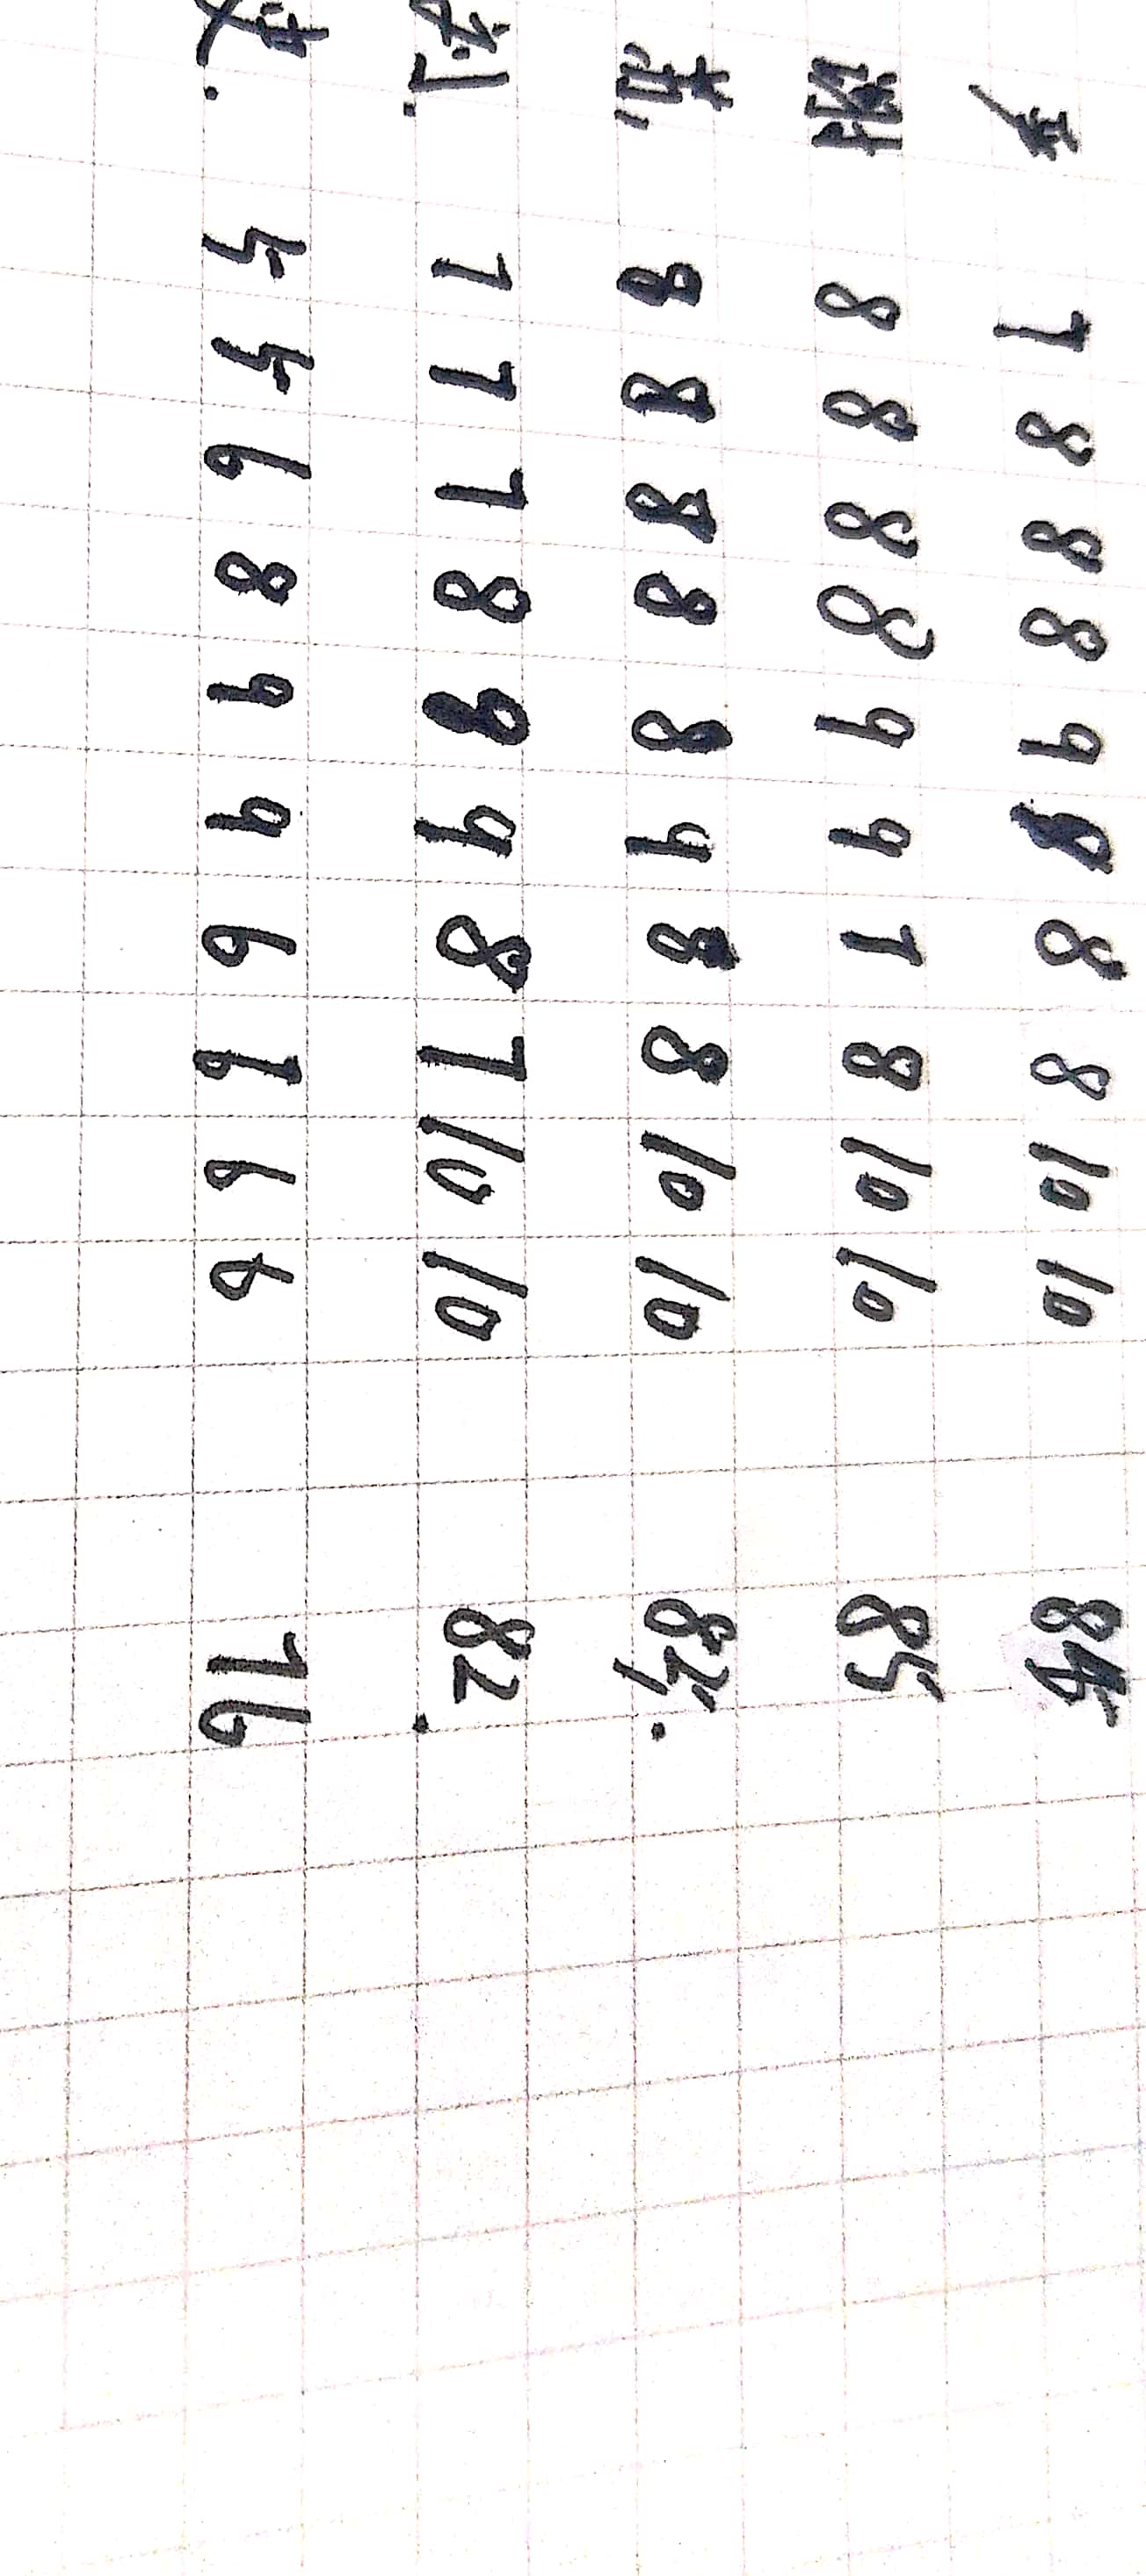 7 8 8 8 9 8 8 8 10 10 84
8 8 8 8 9 9 7 8 10 10 85
8 8 8 8 8 9 8 8 10 10 85.
7 7 7 8 8 9 8 7 10 10 82.
5 5 6 8 9 9 6 6 8 76